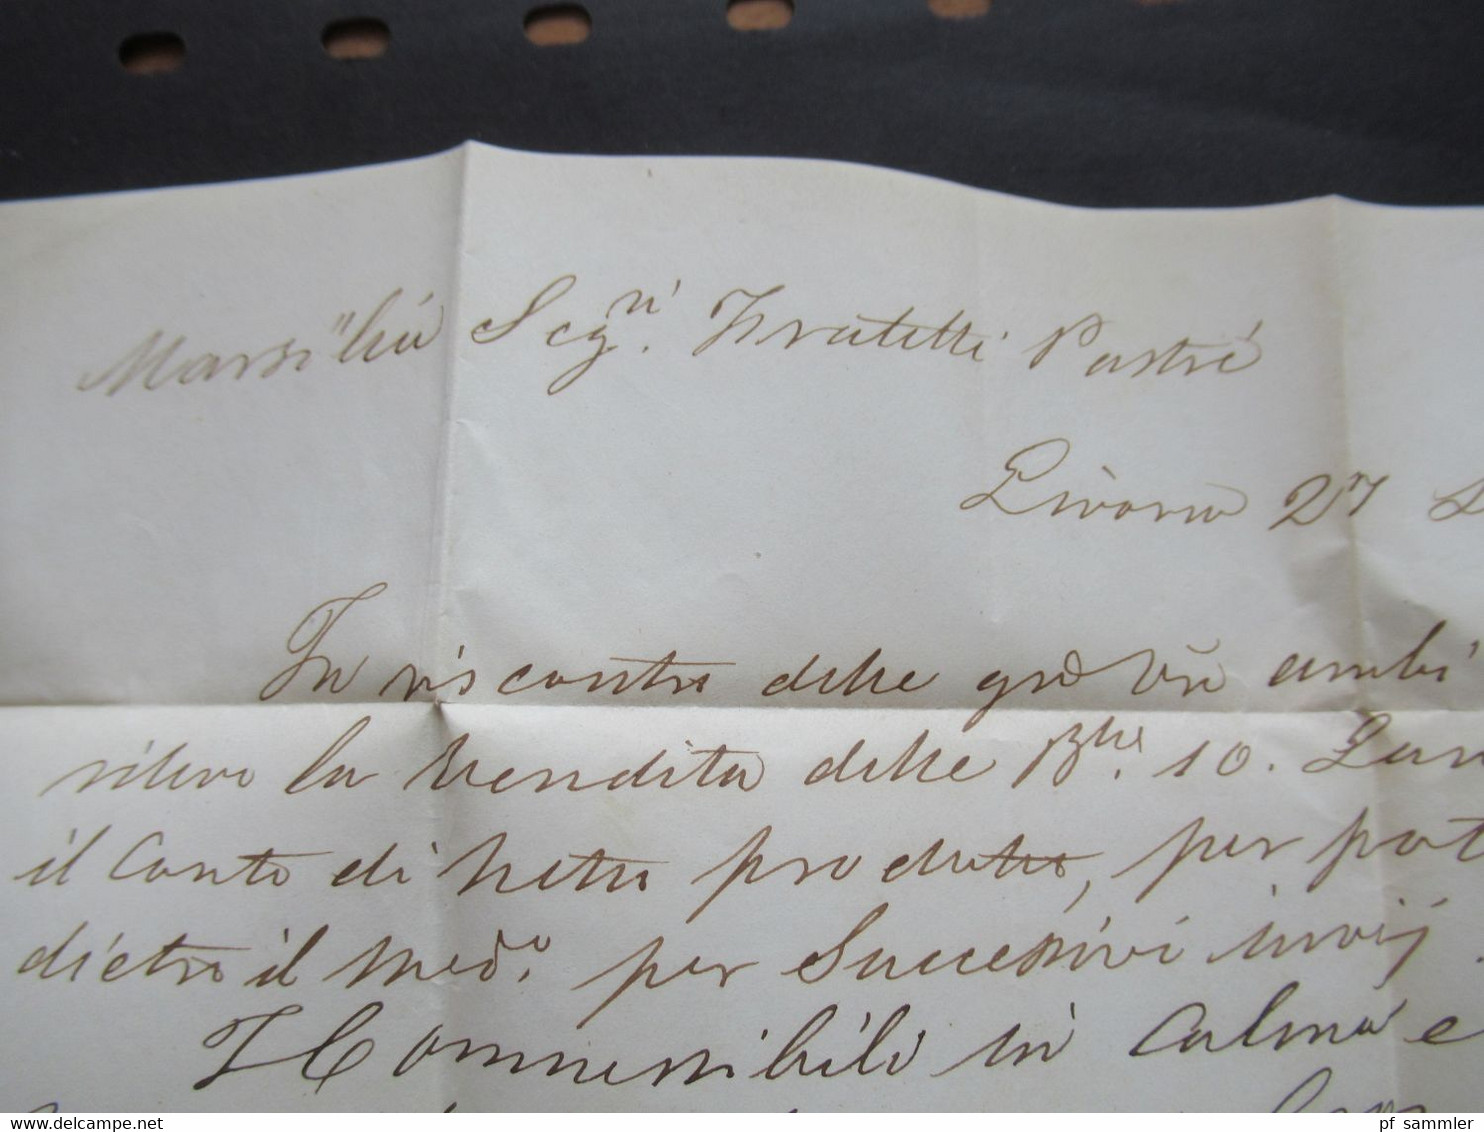 Marsilia Segri. Fratelli Pastré
Livorno 27
In riscontro delle grd. Vre ambi
rilevo la vendita delle Blle. 10. Lan
il Conto di netto prodotto, per pot
dietro il medo. per successivi invij.
I Commessibili in Calma e
pf_sammler